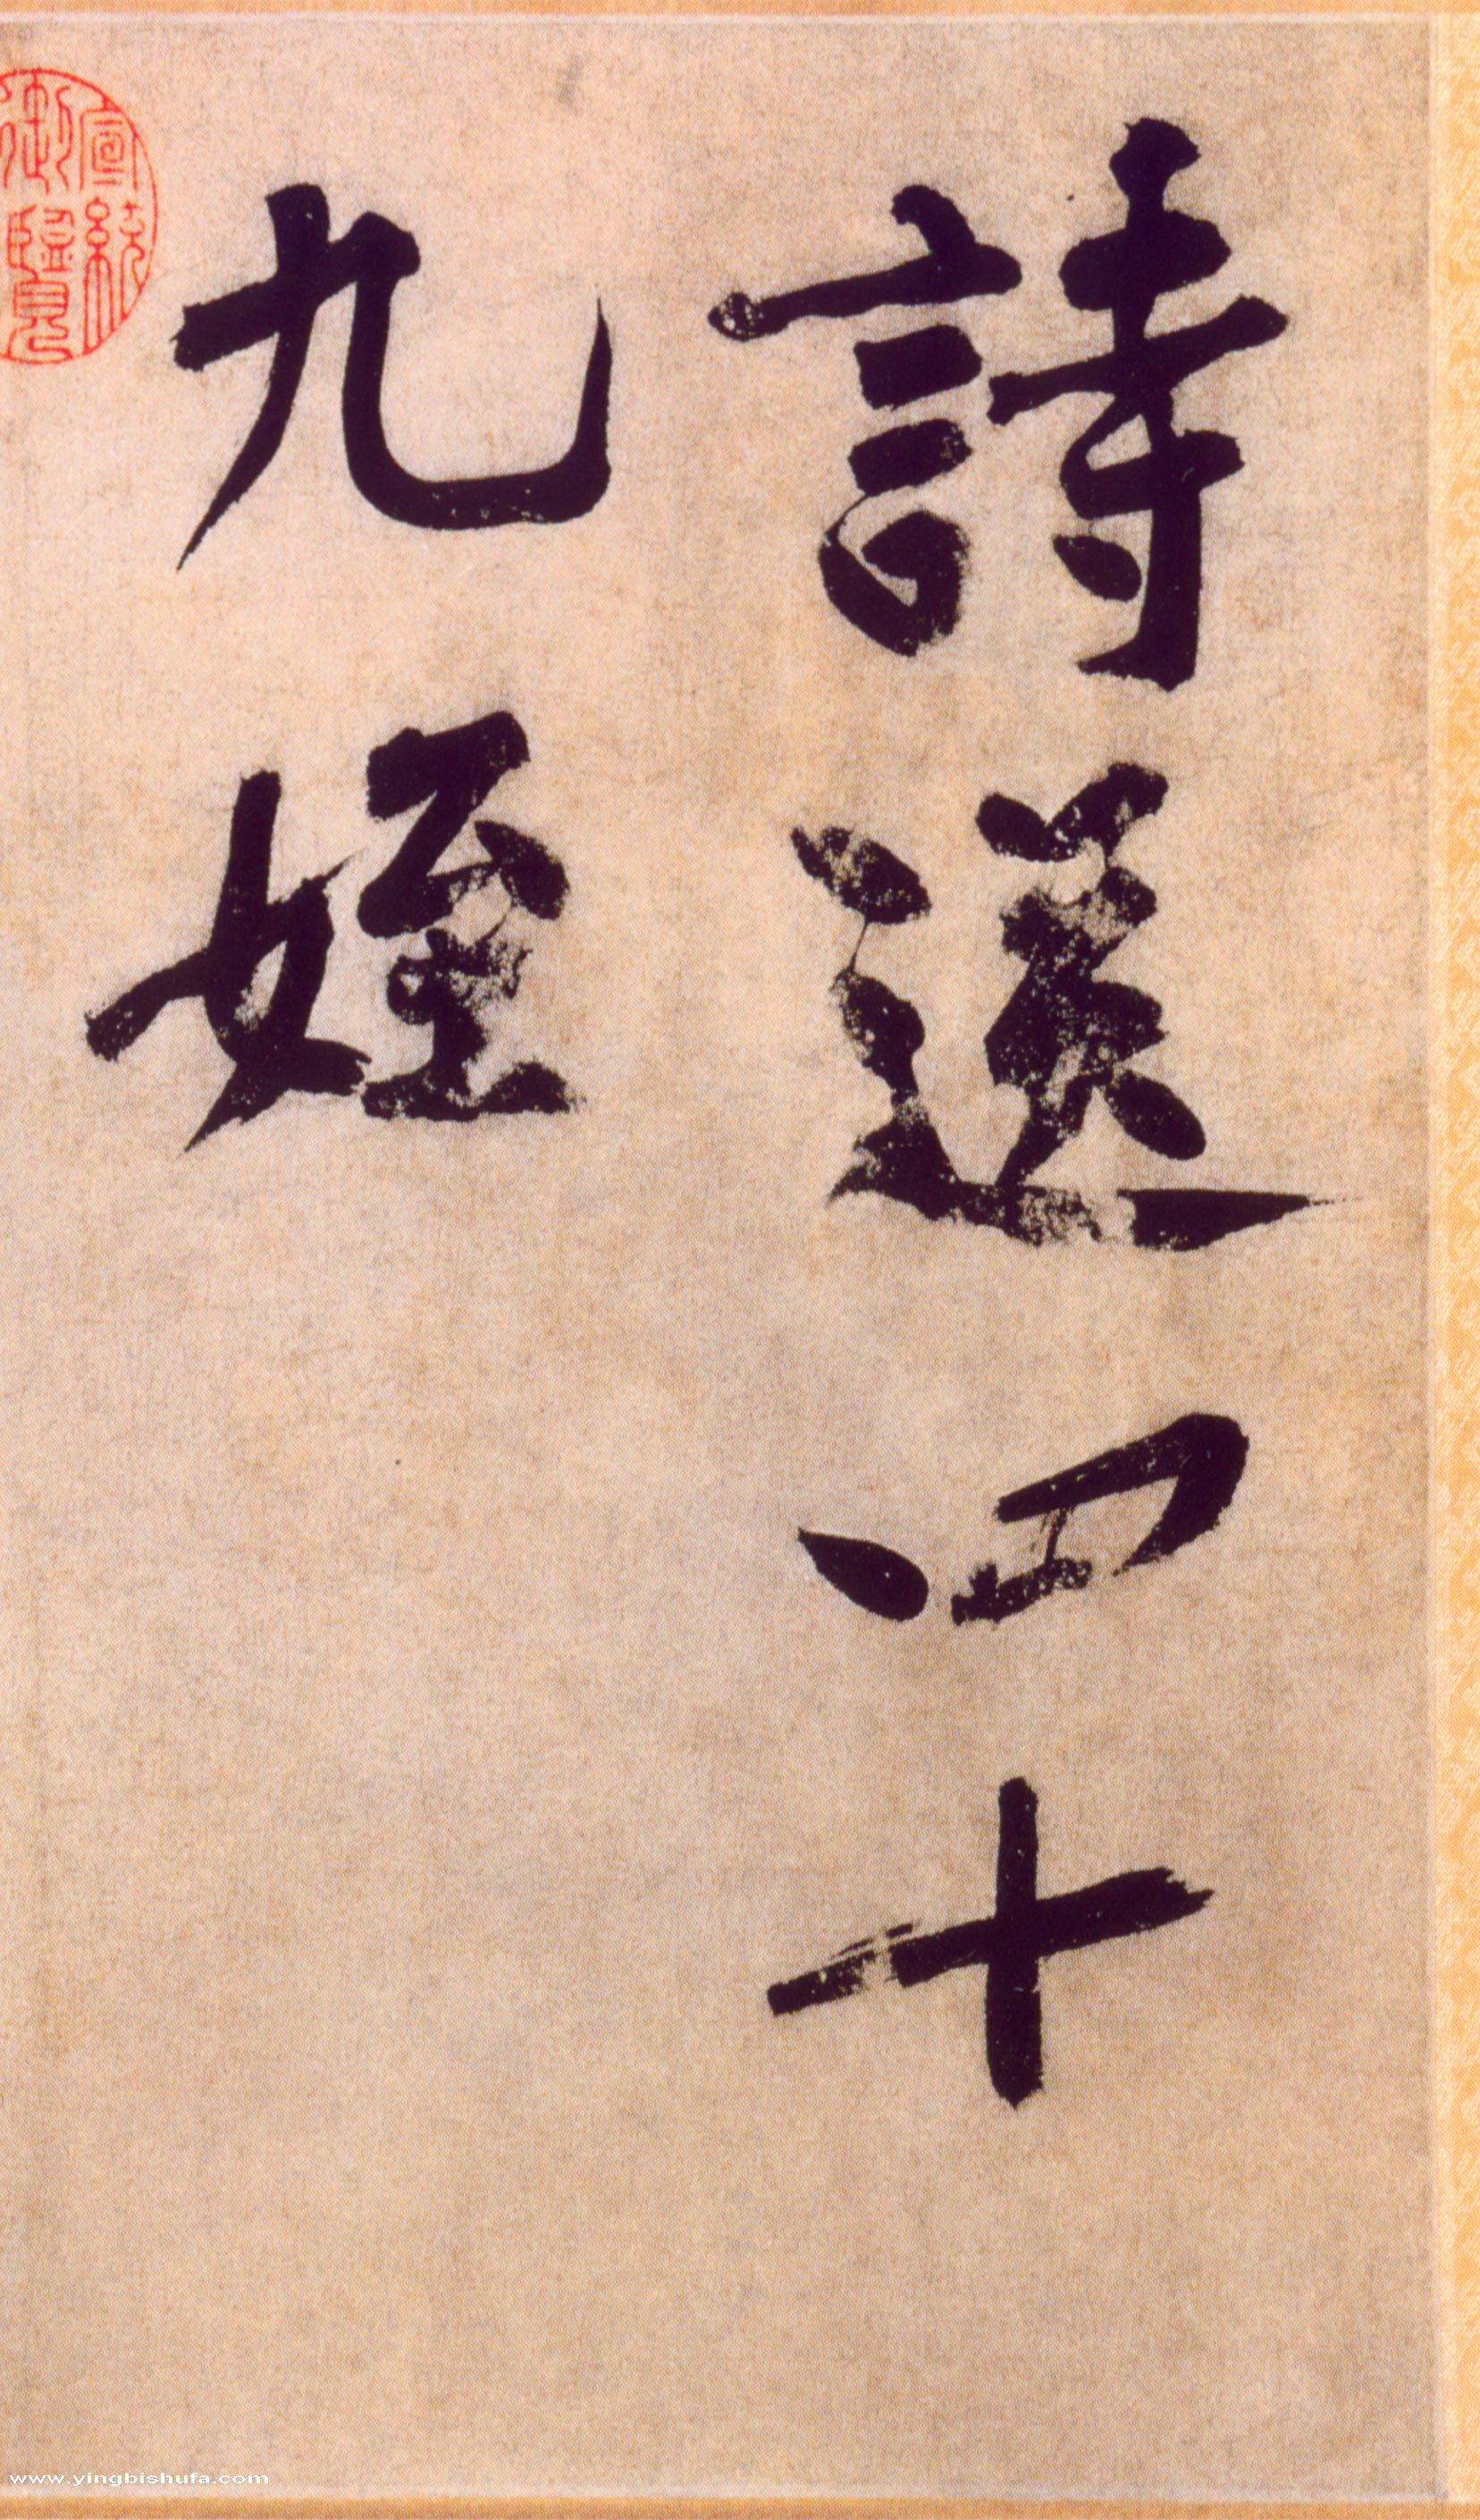 詩送四十
九姪
宣統
御覽
www.yingbishufa.com